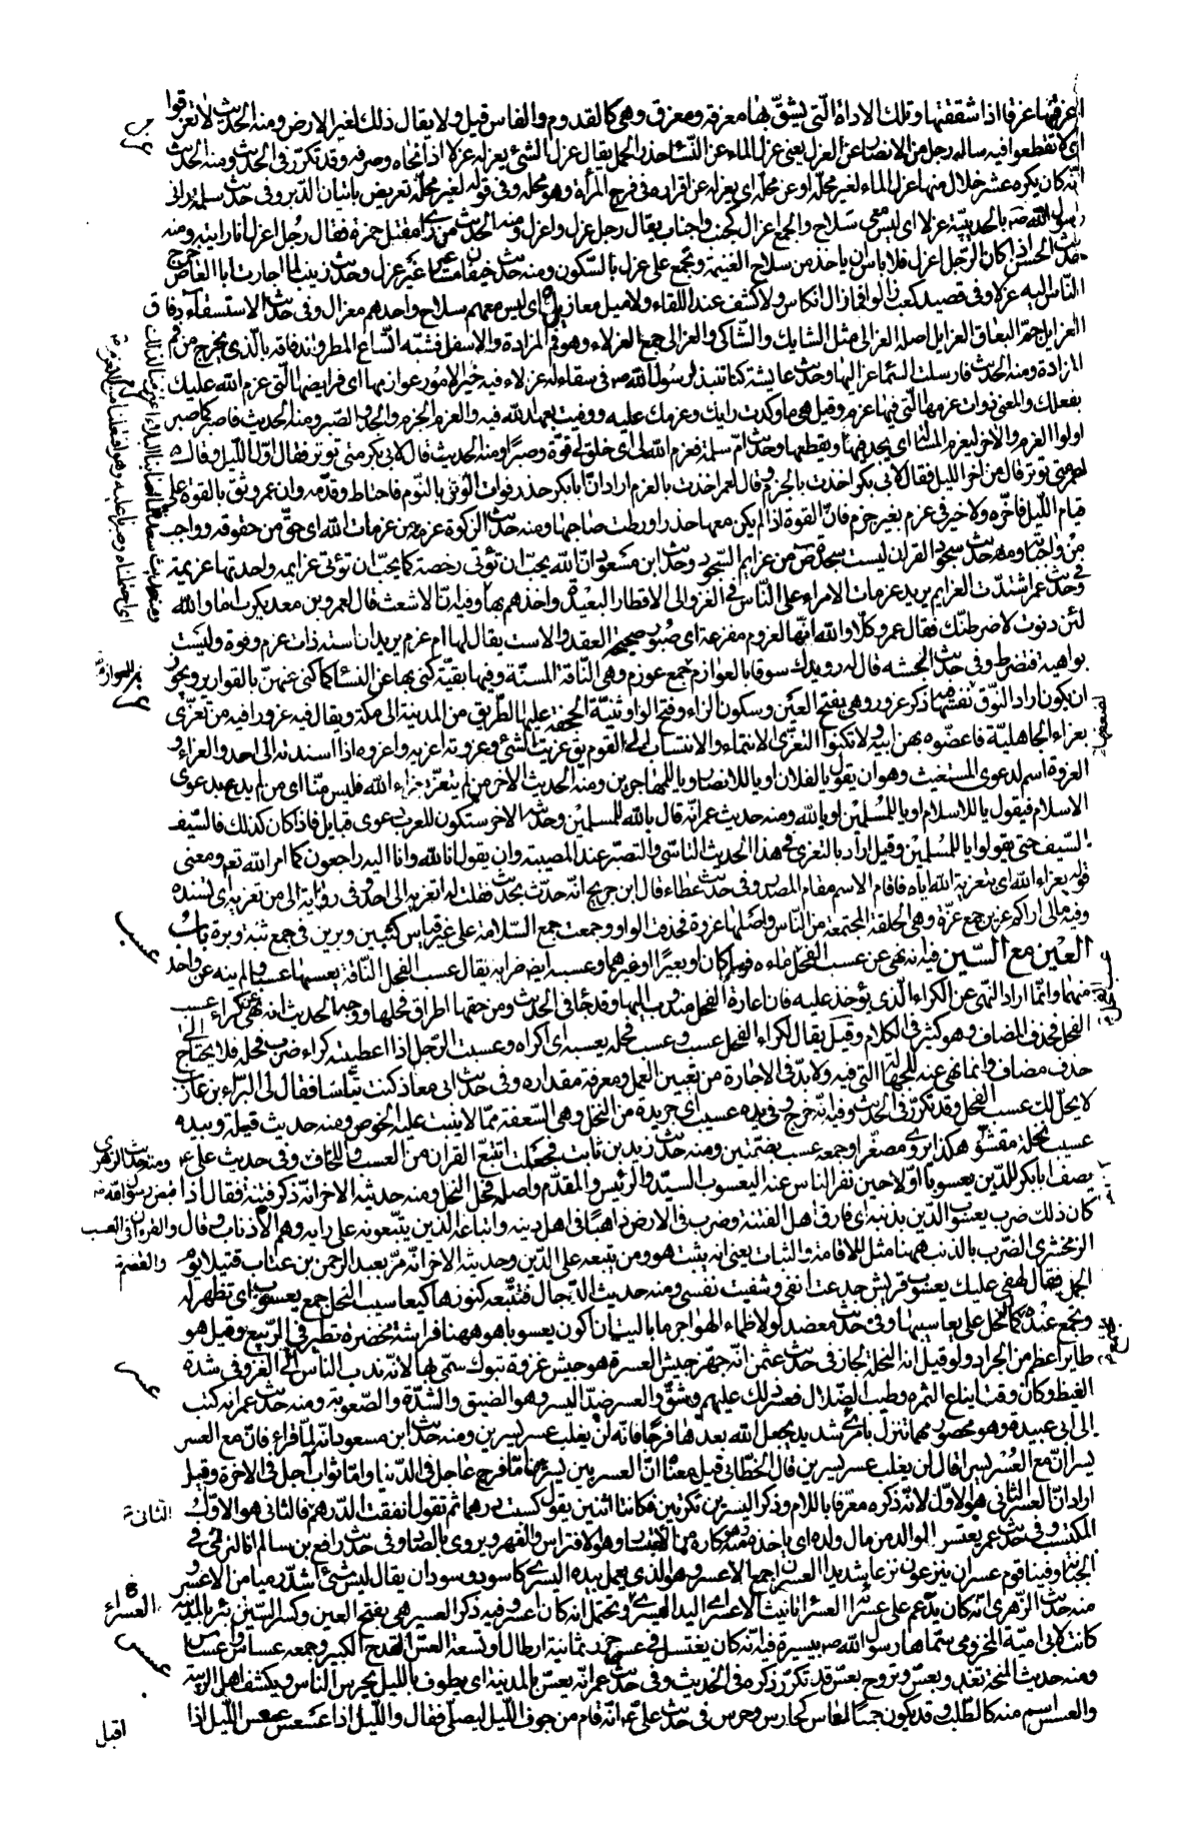 اعزقها عزقا اذا شققتها وتلك الاداة التى يشق بها معزقه ومعزق وهى كالقدوم والفاس قيل ولا يقال ذلك لغير الارض ومنه الحديث لا تعزقوا
اى لا تقطعوا فيه ساله رجل من الانصار عن العزل يعنى عزل الماء عن النساء حذر الحمل يقال عزل الشئ يعزله عزلا اذا نحاه وصرفه وقد تكرر فى الحديث ومنه الحديث
انه كان يكره عشر خلال منها عزل الماء لغير محله او عن محله اى يعزله عن اقراره فى فرج المرأة وهو محله وفى قوله لغير محله تعريض باتيان الدبر وفى حديث سلمه رانى
رسول الله بالحديبية عزلا اى ليس معى سلاح والجمع اعزال كجنب واجناب يقال رجل عزل واعزل ومنه الحديث من راى مقتل حمزة فقال رجل اعزل انا رايته ومنه
حديث الحسن اذا كان الرجل اعزل فلا باس ان ياخذ من سلاح الغنيمة ويجمع على عزل بالسكون ومنه حديث خيفان مساعير غير عزل وحديث زينب لما اجارت ابا العاص خرج
الناس اليه عزلا وفى قصيد كعب زالوا فما زال انكاس ولا كشف عند اللقاء ولا ميل معازيل اى ليس معهم سلاح واحدهم معزال وفى حديث الاستسقاء دفاق
العزايل جم البعاق العزايل اصله العزالى مثل الشايك والشاكى والعزالى جمع العزلاء وهو فم المزادة والاسفل فشبه اتساع المطر واندفاقه بالذى يخرج من فم
المزادة ومنه الحديث فارسلت السماء عزاليها وحديث عايشة كنا ننبذ لرسول الله فى سقاء له عزلاء فيه خير الامور عوازمها اى فرايضها التى عزم الله عليك
بفعلك والمعنى ذوات عزمها التى فيها عزم وقيل هى ما وكدت رايك وعزمك عليه ووفيت بعهد الله فيه والعزم الجزم والجد والصبر ومنه الحديث فاصبر كما صبر
اولوا العزم والاخر ليعزم المسئلة اى يجد فيها ويقطعها وحديث ام سلمة فعزم الله لى اى خلق لى قوة وصبرا ومنه الحديث قال لابى بكر متى توتر فقال اول الليل وقال
لعمر متى توتر قال من آخر الليل فقال لابى بكر اخذت بالحزم وقال لعمر اخذت بالعزم اراد ان ابا بكر حذر فوات الوتر بالنوم فاحتاط وقدمه وان عمر وثق بالقوة على
قيام الليل فاخره ولا خير فى عزم بغير حزم فان القوة اذا لم يكن معها حذر اورطت صاحبها ومنه حديث الزكوة عزمة من عزمات الله اى حق من حقوقه وواجب
من واجباته ومنه حديث سجود القران ليست سجدة ص من عزايم السجود وحديث ابن مسعود ان الله يحب ان تؤتى رخصه كما يحب ان تؤتى عزايمه واحدتها عزيمة
وفى حديث عمر اشتدت العزايم يريد عزمات الامراء على الناس فى الغزو الى الاقطار البعيدة واخذهم بها وفيه ان الاشعث قال لعمرو بن معديكرب اما والله
لئن دنوت لاضرطنك فقال عمرو كلا والله انها لعزوم مفزعة اى صبور صحيحة العقد والاست يقال لها ام عزم يريد ان استه ذات عزم وقوة وليست
بواهية فتضرط وفى حديث انجشه قال له رويدك سوقا بالعوازم جمع عوزم وهى الناقة المسنة وفيها بقية كنى بها عن النساء كما كنى عنهن بالقوارير ويجوز
ان يكون اراد النوق نفسها فيه ذكر عزور وهى بفتح العين وسكون الزاء وفتح الواو ثنية الجحفة عليها الطريق من المدينة الى مكة ويقال فيه عزورا فيه من تعزى
بعزاء الجاهلية فاعضوه بهن ابيه ولا تكنوا التعزى الانتماء والانتساب الى القوم يق عزيت الشئ وعزوته اعزيه واعزوه اذا اسندته الى احد والعزاء و
العزوة اسم لدعوى المستغيث وهو ان يقول يا لفلان او يا للانصار ويا للمهاجرين ومنه الحديث الاخر من لم يتعز بعزاء الله فليس منا اى من لم يدع بدعوى
الاسلام فيقول يا للاسلام او يا للمسلمين او يا لله ومنه حديث عمر انه قال يا لله للمسلمين وحديثه الاخر ستكون للعرب دعوى قبايل فاذا كان كذلك فالسيف
السيف حتى يقولوا يا للمسلمين وقيل اراد بالتعزى فى هذا الحديث التاسى والتصبر عند المصيبة وان يقول انا لله وانا اليه راجعون كما امر الله تعم ومعنى
قوله بعزاء الله اى بتعزية الله اياه فاقام الاسم مقام المصدر وفى حديث عطاء قال ابن جريج انه حدث بحديث فقلت له اتعزيه الى احد وفى رواية الى من تعزيه اى تسنده
وفيه مالى اراكم عزين جمع عزة وهى الحلقة المجتمعة من الناس واصلها عزوة فحذفت الواو وجمعت جمع السلامة على غير قياس كثبين وبرين فى جمع ثبة وبرة باب
العين مع السين فيه انه نهى عن عسب الفحل ماءه فرسا كان او بعيرا او غيرهما وعسبه ايضا ضرابه يقال عسب الفحل الناقة يعسبها عسبا ولم ينه عن واحد
منهما وانما اراد النهى عن الكراء الذى يؤخذ عليه فان اعارة الفحل مندوب اليها وقد جاء فى الحديث ومن حقها اطراق فحلها ووجه الحديث انه نهى عن كراء عسب
الفحل فحذف المضاف وهو كثير فى الكلام وقيل يقال لكراء الفحل عسب وعسب فحله يعسبه اى اكراه وعسبت الرجل اذا اعطيته كراء ضرب فحله فلا يحتاج الى
حذف مضاف وانما نهى عنه للجهالة التى فيه ولا بد فى الاجارة من تعيين العمل ومعرفة مقداره وفى حديث ابى معاذ كنت تياسا فقال لى البراء بن عازب
لا يحل لك عسب الفحل وقد تكرر فى الحديث وفيه انه خرج وفى يده عسيب اى جريدة من النخل وهى السعفة مما لا ينبت عليه الخوص ومنه حديث قيلة وبيده
عسيب نخلة مقشو هكذا يروى مصغرا وجمعه عسب بضمتين ومنه حديث زيد بن ثابت فجعلت اتتبع القران من العسب واللخاف وفى حديث على
يصف ابابكر للدين يعسوبا اولا حين نفر الناس عنه اليعسوب السيد والرئيس والمقدم واصله فحل النحل ومنه حديثه الاخر انه ذكر فتنة فقال اذا
كان ذلك ضرب يعسوب الدين بذنبه اى فارق اهل الفتنة وضرب فى الارض ذاهبا فى اهل دينه واتباعه الذين يتبعونه على رايه وهم الاذناب وقال
الزمخشرى الضرب بالذنب ههنا مثل للاقامة والثبات يعنى انه يثبت هو ومن يتبعه على الدين وحديثه الاخر انه مر بعبد الرحمن بن عتاب قتيلا يوم
الجمل فقال لهفى عليك يعسوب قريش جدعت انفى وشفيت نفسى ومنه حديث الدجال فتتبعه كنوزها كيعاسيب النحل جمع يعسوب اى تظهر له
وتجمع عنده كما تجمع النحل على يعاسيبها وفى حديث معضد لولا ظماء الهواجر ما باليت ان اكون يعسوبا هو ههنا فراشة مخضرة تطير فى الربيع وقيل هو
طاير اعظم من الجراد ولو قيل انه النحلة لجاز فى حديث عثمن انه جهز جيش العسرة هو جيش غزوة تبوك سمى بها لانه ندب الناس الى الغزو فى شدة
القيظ وكان وقت ايناع الثمرة وطيب الظلال فعسر ذلك عليهم وشق والعسر ضد اليسر وهو الضيق والشدة والصعوبة ومنه حديث عمر انه كتب
الى ابى عبيدة وهو محصور مهما تنزل بامرئ شديدة يجعل الله بعدها فرجا فانه لن يغلب عسر يسرين ومنه حديث ابن مسعود انه لما قراء فان مع العسر
يسرا ان مع العسر يسرا قال لن يغلب عسر يسرين قال الخطابى قيل معناه ان العسر بين يسرين اما فرج عاجل فى الدنيا واما ثواب آجل فى الاخرة وقيل
اراد ان العسر الثانى هو الاول لانه ذكره معرفا باللام وذكر اليسرين نكرتين فكانتا اثنين يقول كسبت درهما ثم تقول انفقت الدرهم فالثانى هو الاول
المكتسب وفى حديث عمر يعتسر الوالد من مال ولده اى ياخذه منه وهو كاره من الاعتسار وهو الافتراس والقهر ويروى بالصاد وفى حديث رافع بن سالم انا لنرتمى فى
الجبانة وفينا قوم عسران ينزعون نزعا شديدا العسران جمع الاعسر وهو الذى يعمل بيده اليسرى كاسود وسودان يقال ليس شئ اشد رميا من الاعسر و
منه حديث الزهرى انه كان يدعم على عسرائه العسراء تانيث الاعسر اى اليد العسرى ويحتمل انه كان اعسر وفيه ذكر العسير هى بفتح العين وكسر السين بئر بالمدينة
كانت لابى امية المخزومى سماها رسول الله بيسيرة فيه انه كان يغتسل فى عس حزر ثمانية ارطال او تسعة العس القدح الكبير وجمعه عساس واعساس
ومنه حديث المنحة تغدو بعس وتروح بعس قد تكرر ذكره فى الحديث وفى حديث عمر انه يعس بالمدينة اى يطوف بالليل يحرس الناس ويكشف اهل الريبة
والعسس اسم منه كالطلب وقد يكون جمعا لعاس كحارس وحرس فى حديث على انه قام من جوف الليل ليصلى فقال والليل اذا عسعس عسعس الليل اذا
اقبل